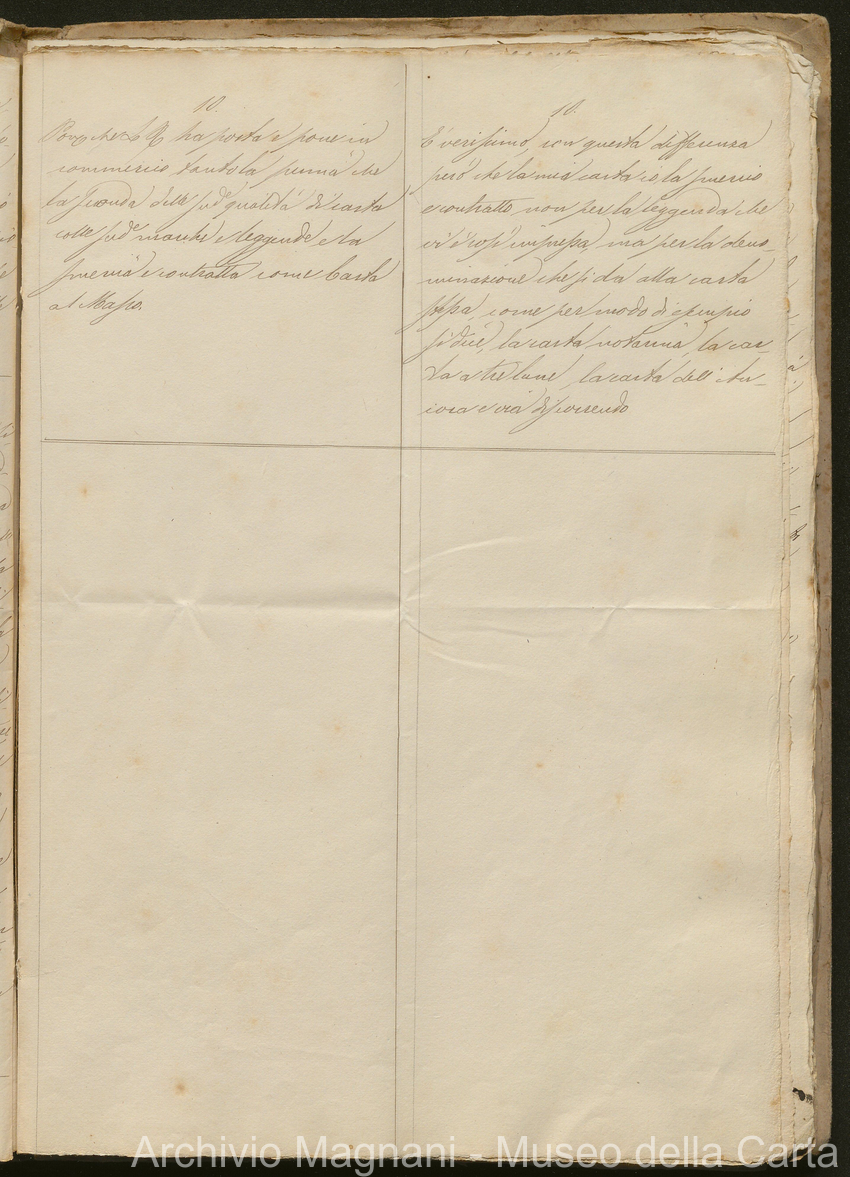 10.
Pong che L R ha posta e pone in
commercio tanto la prima che
la seconda delle sudᵉ qualità di carta
colle sudᵉ marche e leggende e la
smercia e contratta come Carta
al Masso.
10.
E' verissimo, con questa differenza
però che la mia carta io la smercio
e contratto, non per la leggenda che
vi è così impressa, ma per la deno-
minazione che si da alla carta
stessa, come per modo di esempio
si dice, la carta notarina, la car-
ta a tre lune, la carta dell' An-
cora e via discorrendo
Archivio Magnani - Museo della Carta